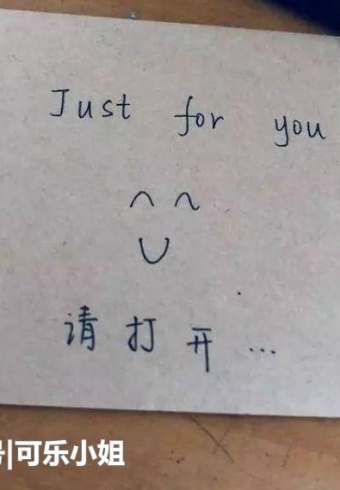 Just for you
请打开...
号|可乐小姐